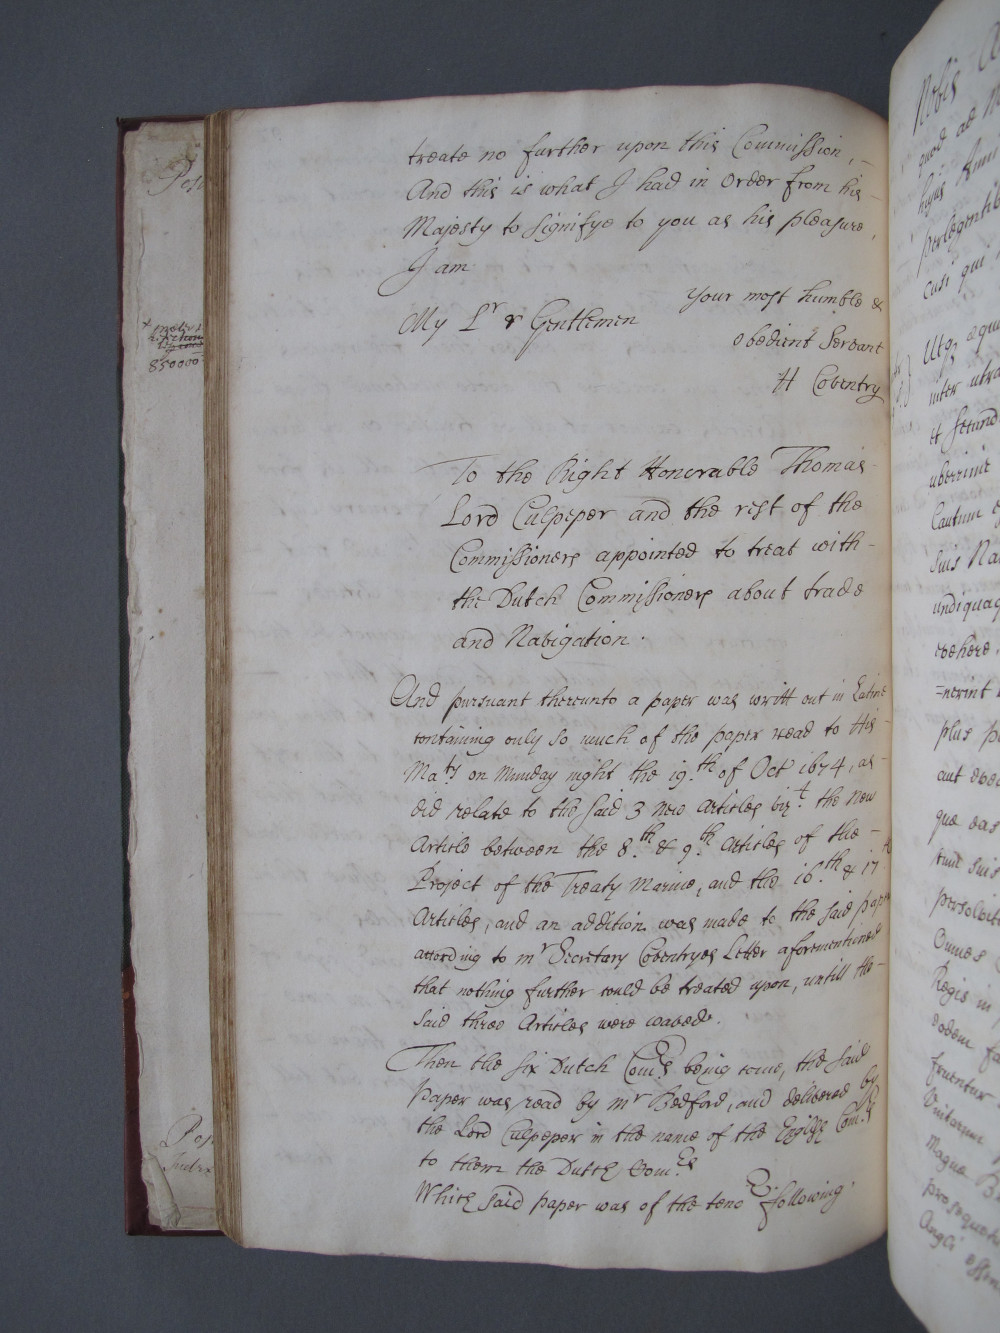 treate no further upon this Commission, –
And this is what I had in Order from his –
Majesty to signifye to you as his pleasure,
I am
your most humble &
My Lr & Gentlemen
obedient Servant
H Coventry
To the Right Honorable Thomas
Lord Culpeper and the rest of the
Commissioners appointed to treat with –
the Dutch Commissioners about trade
and Navigation.
And pursuant thereunto a paper was writt out in Latine
containing only so much of the paper read to His –
Maty on Munday night the 19.th of Oct 1674, as –
did relate to the said 3 new Articles vizt. the New
Article between the 8.th & 9.th Articles of the –
Project of the Treaty Marine, and the 16.th & 17.th
Articles, and an addition was made to the said paper
according to mr Secretary Coventryes Letter aforementioned
that nothing further could be treated upon, untill the –
said three Articles were waved.
Then the six Dutch Coms being come, the said
Paper was read by mr Bedford, and delivered by
the Lord Culpeper in the name of the English Coms
to them the Dutch Comrs
Which said paper was of the teno following
850000
Nobis
quod ad
hujus Anni
perlegentib
cusi qui
Utq aequa
inter utra
et secund
uberrime
Cautum e
suis Na
undiquaq
evehere,
=nerint
plus p
aut evec
que eas
tuul suis
persolvere
Omnes
Regis in
eodem fa
fruentur
Unitarum
Magnae B
prosequetu
Angli